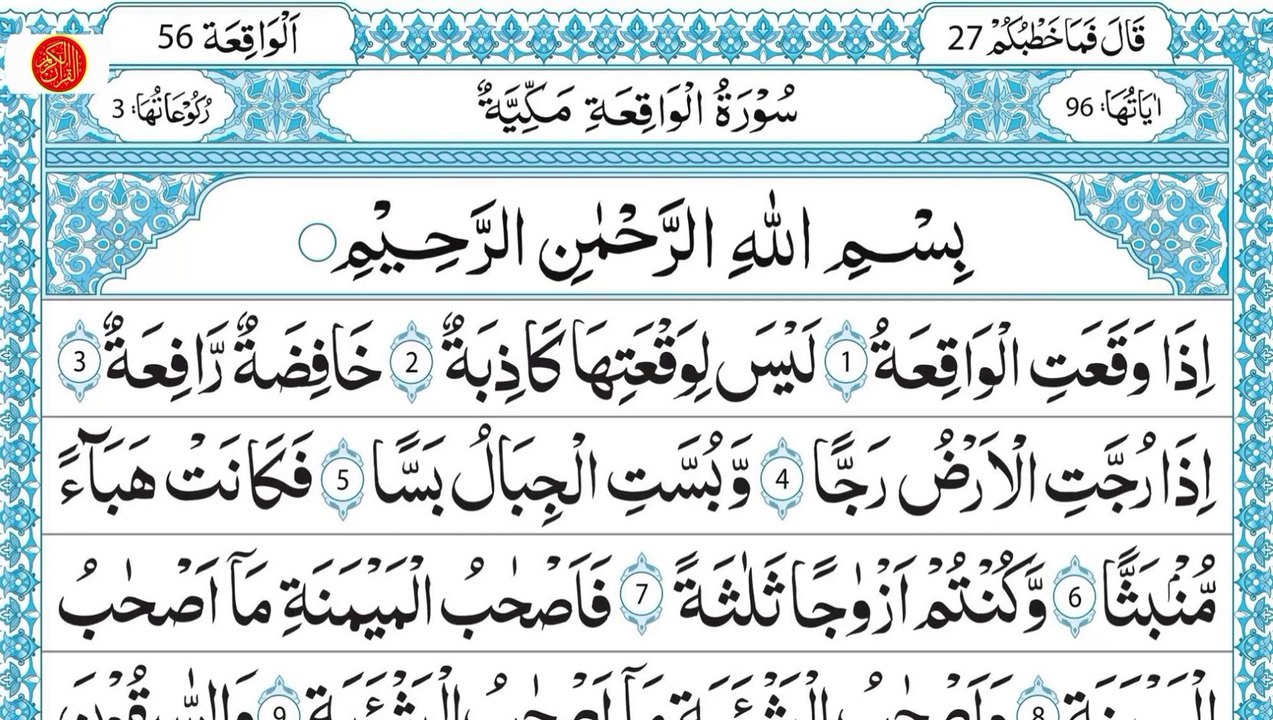 قَالَ فَمَاخَطْبُكُمْ 27
اَلْوَاقِعَة 56
اٰيَاتُهَا: 96
سُوْرَةُ الْوَاقِعَةِ مَكِّيَّةٌ
رُكُوْعَاتُهَا: 3
بِسْمِ اللّٰهِ الرَّحْمٰنِ الرَّحِيْمِ
اِذَا وَقَعَتِ الْوَاقِعَةُ 1 لَيْسَ لِوَقْعَتِهَا كَاذِبَةٌ 2 خَافِضَةٌ رَّافِعَةٌ 3
اِذَا رُجَّتِ الْاَرْضُ رَجًّا 4 وَّبُسَّتِ الْجِبَالُ بَسًّا 5 فَكَانَتْ هَبَآءً
مُّنْۢبَثًّا 6 وَّكُنْتُمْ اَزْوٰجًا ثَلٰثَةً 7 فَاَصْحٰبُ الْمَيْمَنَةِ مَآ اَصْحٰبُ
الْمَيْمَنَةِ 8 وَاَصْحٰبُ الْمَشْـَٔمَةِ مَآ اَصْحٰبُ الْمَشْـَٔمَةِ 9 وَالسّٰبِقُوْنَ